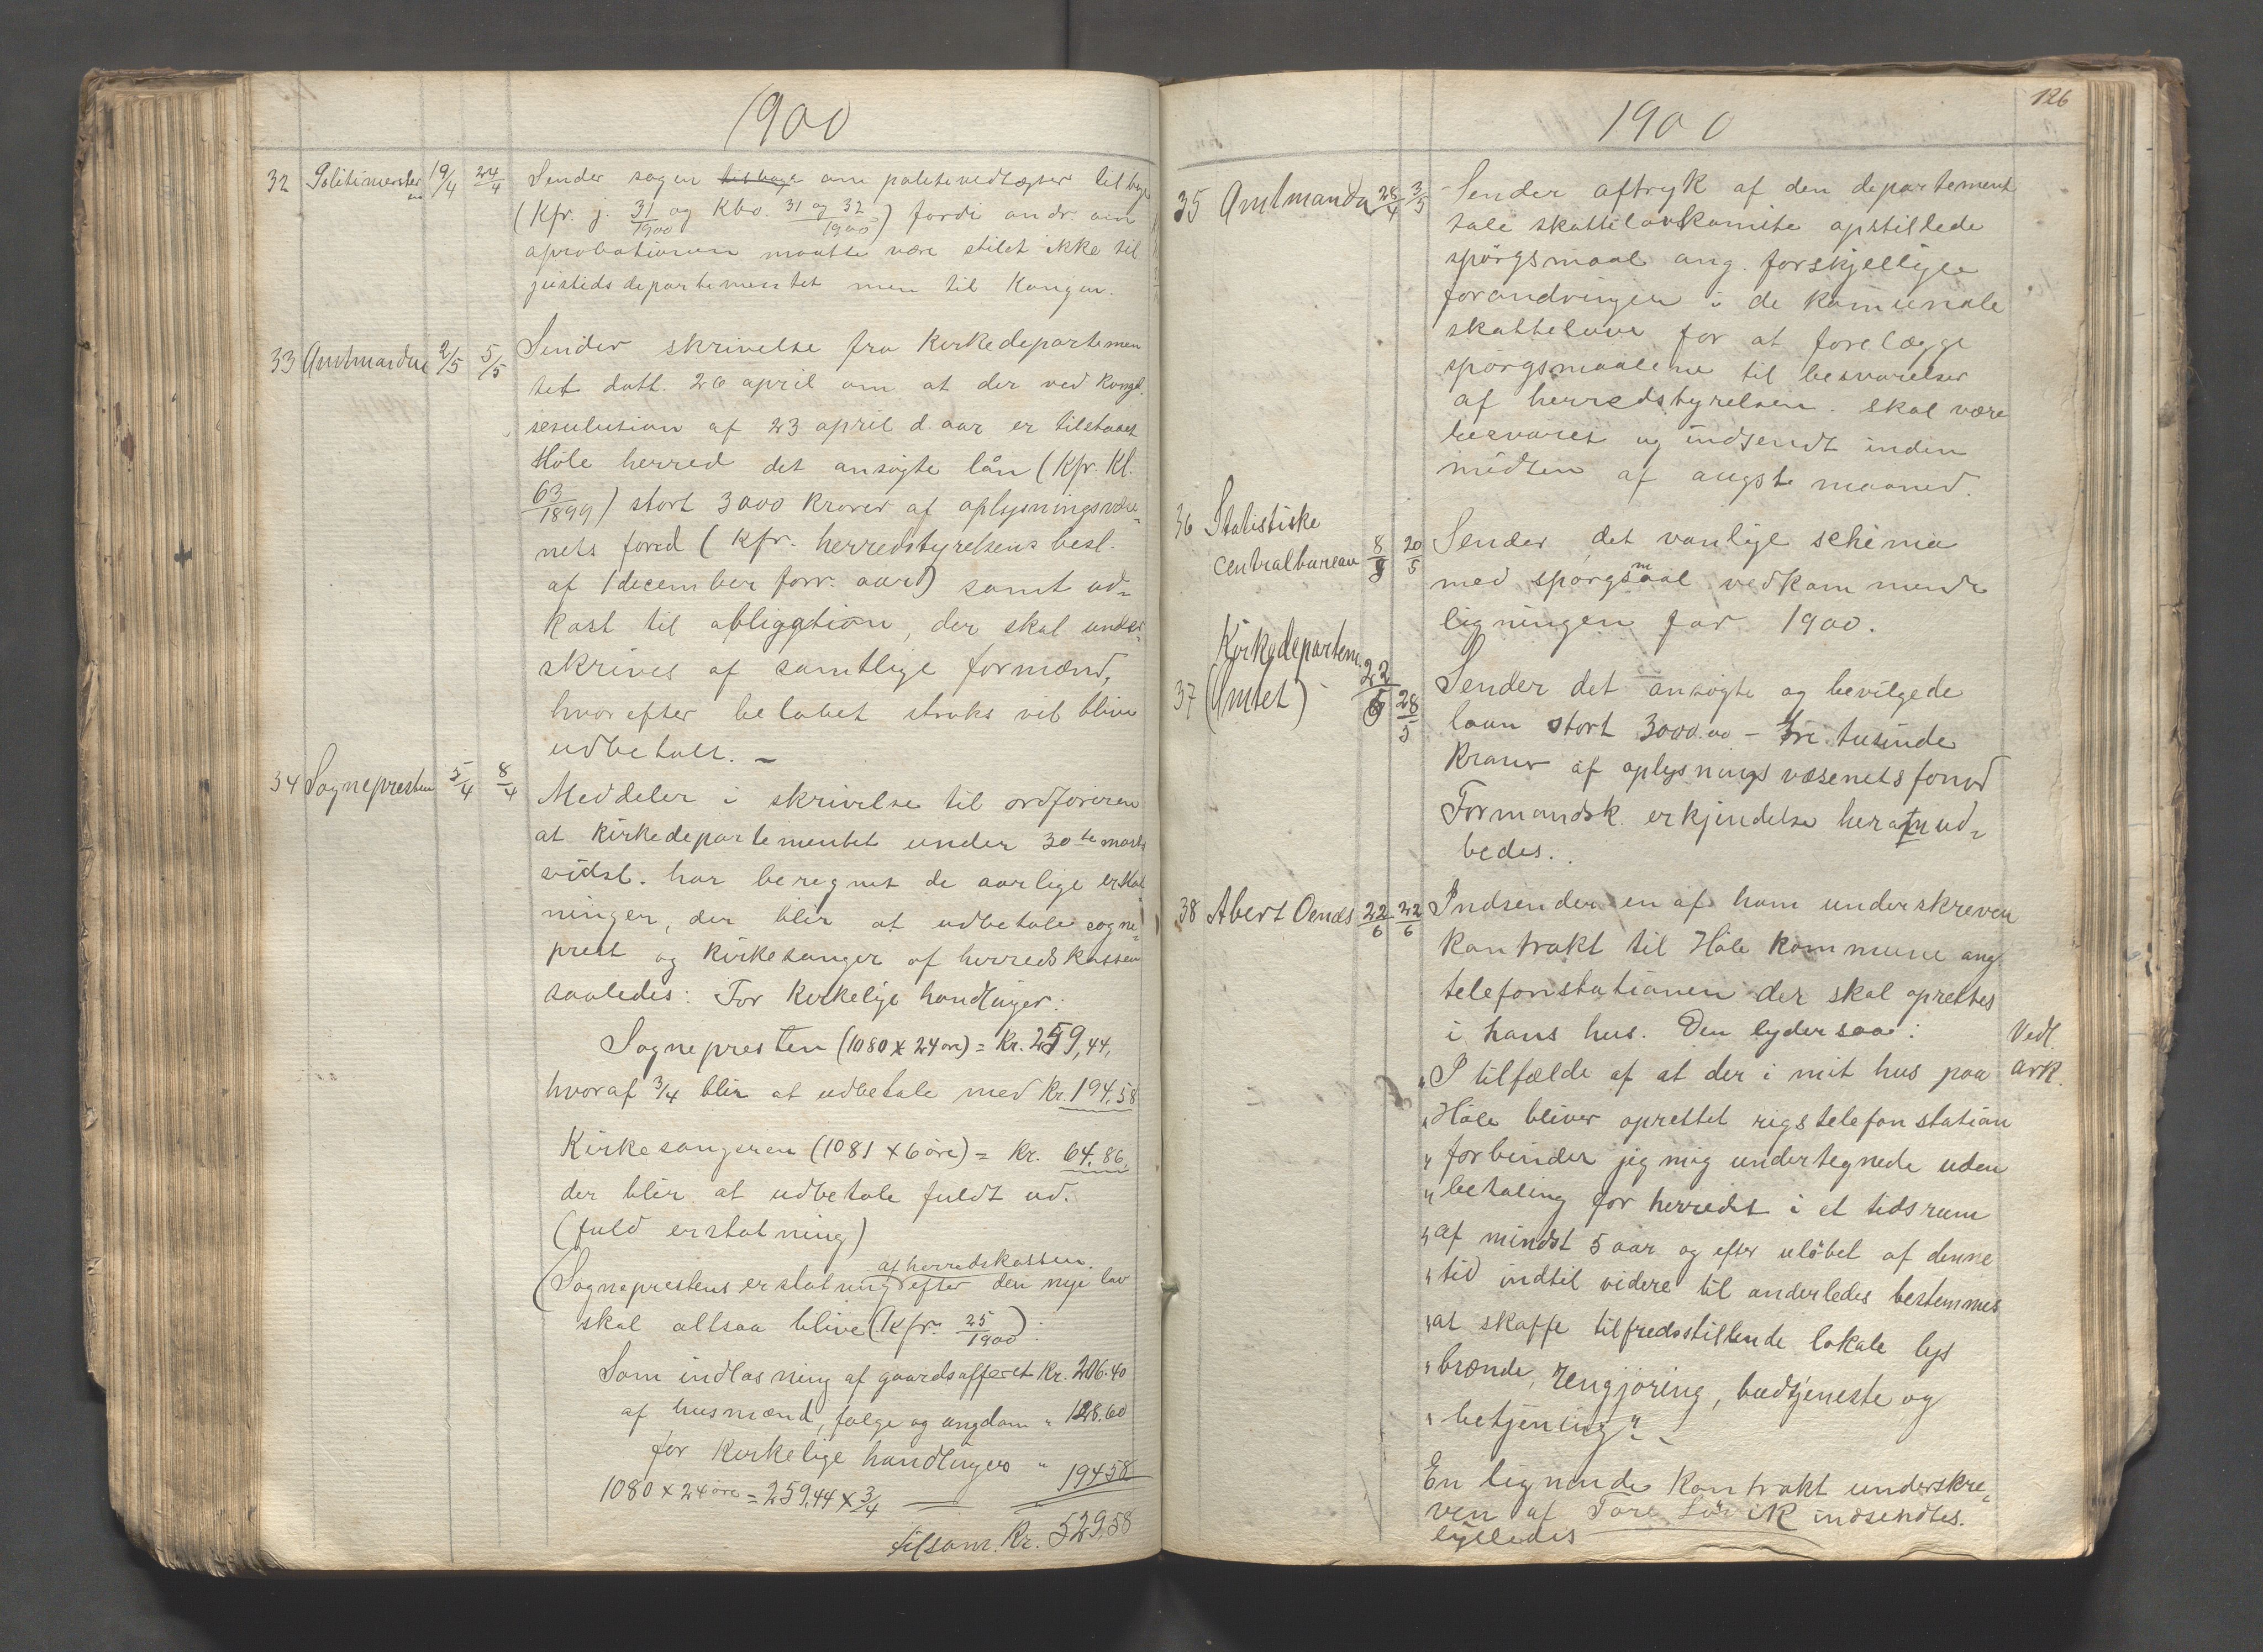 1900
32 Politimesteren 19/4 24/4 Sender sagen tilbage om politivedtægter tilbage
(Kfr. j. 31/1900 og Kbo. 31 og 32/1900) fordi andr. om
aprobationen maatte være stilet ikke til
justidsdepartementet men til Kongen.
33 Amtmanden 2/5 5/5 Sender skrivelse fra Kirkedepartemen
tet datt. 26 april om at der ved Kongl.
resulution af 23 april d. aar er tilstaaet
Höle herred det ansögte lån (Kfr. Kl.
63/1899) stort 3000 kroner af oplysningsvæse„
nets fond (Kfr. herredstyrelsens besl.
af 1 december forr. aar) samt ud„
kast til obligation, der skal under„
skrives af samtlige formænd,
hvorefter belöbet straks vil blive
udbetalt. –
34 Sognepresten 5/4 8/4 Meddeler i skrivelse til ordföreren
at Kirkedepartementet under 30te marts
sidst. har beregnet de aarlige erstat
ninger, der blir at udbetale sogne„
prest og Kirkesanger af herredskassen
saaledes: For Kirkelige handlinger:
Sognepresten (1080 x 24 öre) = Kr. 259,44,
hvoraf 3/4 blir at udbetale med Kr. 194,58
Kirkesangeren (1081 x 6 öre) = Kr. 64,86
der blir at udbetale fuldt ud.
(fuld erstatning)
af herredskassen
(Sogneprestens erstatning efter den nye lov
skal altsaa blive (Kfr. 25/1900):
Som indlösning af gaardsofferet Kr. 206.40
af husmænd, folge og ungdom " 128.60
for Kirkelige handlinger " 194 58
1080 x 24 öre = 259,44 x 3/4
tilsam. Kr. 529,58
126
1900
35 Amtmanden 28/4 3/5 Sender aftryk af den departement
tale skattelovkomite opstillede
spörgsmaal ang. forskjellige
forandringer i de komunale
skattelove for at forelægge
spörgsmaalene til besvarelser
af herredstyrelsen. Skal være
besvaret og indsendt inden
midten af augst maaned.
36 Statistiske
centralbureau 8/5 20/5 Sender det vanlige schema
med spörgsmaal vedkommende
ligningen for 1900.
Kirkedepartem.
37 (Amtet) 22/5 28/5 Sender det ansögte og bevilgede
laan stort 3000.00 – Tre tusinde
Kroner af oplysningsvæsenets fond
Formandsk. erkjendelse herafn ud„
bedes.
38 Abert Oenæs 22/6 22/6 Indsender en af ham underskreven
kontrakt til Höle kommune ang.
telefonstationen der skal oprettes
i hans hus. Den lyder saa:
Vedl.
ark.
„I tilfælde af at der i mit hus paa
„Höle bliver oprettet rigstelefonstation
„forbinder jeg mig undertegnede uden
„betaling for herredet i et tidsrum
„af mindst 5 aar og efter ulöbet af denne
„tid indtil videre til anderledes bestemmes
„at skaffe tilfredsstillende lokale lys
„brænde, rengjöring, budtjeneste og
„betjening“.
En lignende Kontrakt underskre„
ven af Tore indsendtes.
ligeledes